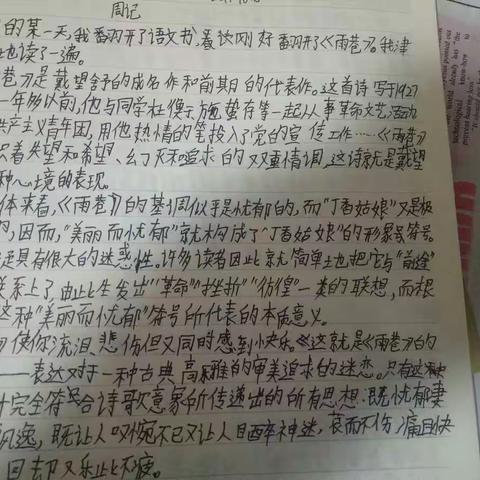 周记
的某一天,我翻开了语文书,着议刚好翻开了《雨巷》。我津
也读了一遍。
巷》是戴望舒的成名作和前期的代表作。这首诗写于1927
一年多以前,他与同学杜衡、施蛰存等一起从事革命文艺活动
共产主义青年团,用他热情的笔投入了党的宣传工作……《雨巷》
只着失望和希望、幻灭和追求的双重情调,这诗就是戴望
种心境的表现。
体来看,《雨巷》的基调似乎是忧郁的,而"丁香姑娘"又是极
的,因而,"美丽而忧郁"就构成了"丁香姑娘"的形象符号。
还具有很大的迷惑性。许多读者因此就简单地把它与"前途"
联系上了,由此生发出"革命""挫折""彷徨"一类的联想,而根
这种"美丽而忧郁"符号所代表的本质意义。
使你流泪、悲伤但又同时感到小快乐。《这就是《雨巷》的
——表达对于一种古典高雅的审美追求的迷恋。只有这种
完全符合诗歌意象所传递出的所有思想:既忧郁凄
飘逸,既让人叹惋不已又让人目醉神迷,哀而不伤,痛且快
回却又乐此不疲。
technological